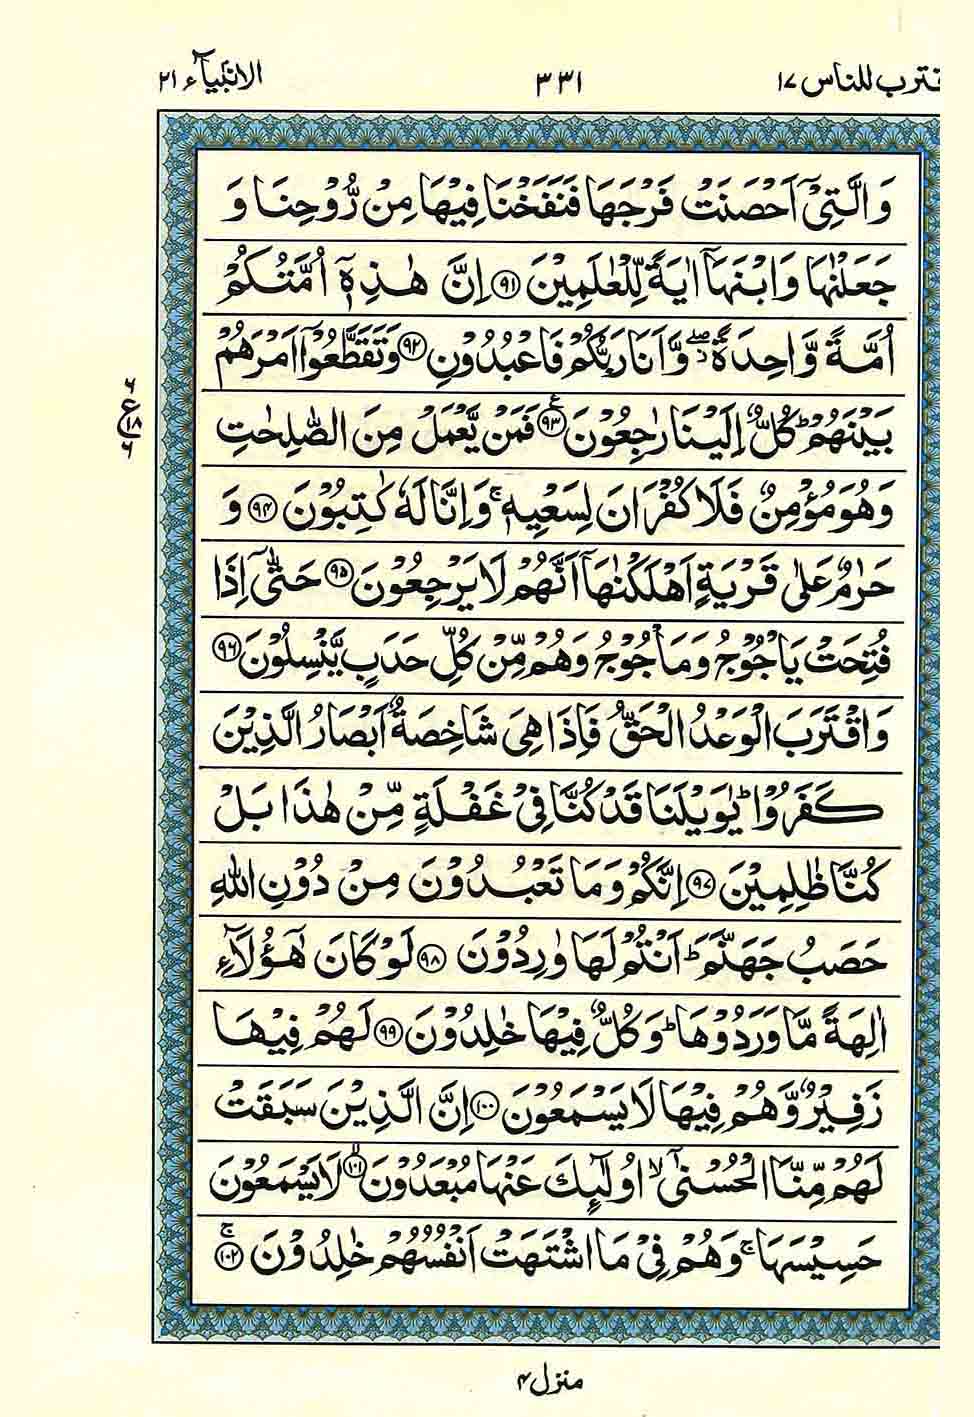 قترب للناس ١٧
٣٣١
الانبیآء ٢١
وَ الَّتِیْۤ اَحْصَنَتْ فَرْجَهَا فَنَفَخْنَا فِیْهَا مِنْ رُّوْحِنَا وَ
جَعَلْنٰهَا وَ ابْنَهَاۤ اٰیَةً لِّلْعٰلَمِیْنَ ﴿٩١﴾ اِنَّ هٰذِهٖۤ اُمَّتُكُمْ
اُمَّةً وَّاحِدَةً ۖ٘ وَّ اَنَا رَبُّكُمْ فَاعْبُدُوْنِ ﴿٩٢﴾ وَ تَقَطَّعُوْۤا اَمْرَهُمْ
بَیْنَهُمْ ؕ كُلٌّ اِلَیْنَا رٰجِعُوْنَ ﴿٩٣﴾ۧ فَمَنْ یَّعْمَلْ مِنَ الصّٰلِحٰتِ
٦ ع ١٨ ٦
وَ هُوَ مُؤْمِنٌ فَلَا كُفْرَانَ لِسَعْیِهٖ ۚ وَ اِنَّا لَهٗ كٰتِبُوْنَ ﴿٩٤﴾ وَ
حَرٰمٌ عَلٰی قَرْیَةٍ اَهْلَكْنٰهَاۤ اَنَّهُمْ لَا یَرْجِعُوْنَ ﴿٩٥﴾ حَتّٰۤی اِذَا
فُتِحَتْ یَاْجُوْجُ وَ مَاْجُوْجُ وَ هُمْ مِّنْ كُلِّ حَدَبٍ یَّنْسِلُوْنَ ﴿٩٦﴾
وَ اقْتَرَبَ الْوَعْدُ الْحَقُّ فَاِذَا هِیَ شَاخِصَةٌ اَبْصَارُ الَّذِیْنَ
كَفَرُوْا ؕ یٰوَیْلَنَا قَدْ كُنَّا فِیْ غَفْلَةٍ مِّنْ هٰذَا بَلْ
كُنَّا ظٰلِمِیْنَ ﴿٩٧﴾ اِنَّكُمْ وَ مَا تَعْبُدُوْنَ مِنْ دُوْنِ اللّٰهِ
حَصَبُ جَهَنَّمَ ؕ اَنْتُمْ لَهَا وٰرِدُوْنَ ﴿٩٨﴾ لَوْ كَانَ هٰۤؤُلَآءِ
اٰلِهَةً مَّا وَرَدُوْهَا ؕ وَ كُلٌّ فِیْهَا خٰلِدُوْنَ ﴿٩٩﴾ لَهُمْ فِیْهَا
زَفِیْرٌ وَّ هُمْ فِیْهَا لَا یَسْمَعُوْنَ ﴿١٠٠﴾ اِنَّ الَّذِیْنَ سَبَقَتْ
لَهُمْ مِّنَّا الْحُسْنٰۤی ۙ اُولٰٓىِٕكَ عَنْهَا مُبْعَدُوْنَ ﴿١٠١﴾ۙ لَا یَسْمَعُوْنَ
حَسِیْسَهَا ۚ وَ هُمْ فِیْ مَا اشْتَهَتْ اَنْفُسُهُمْ خٰلِدُوْنَ ﴿١٠٢﴾ۚ
منزل ٤